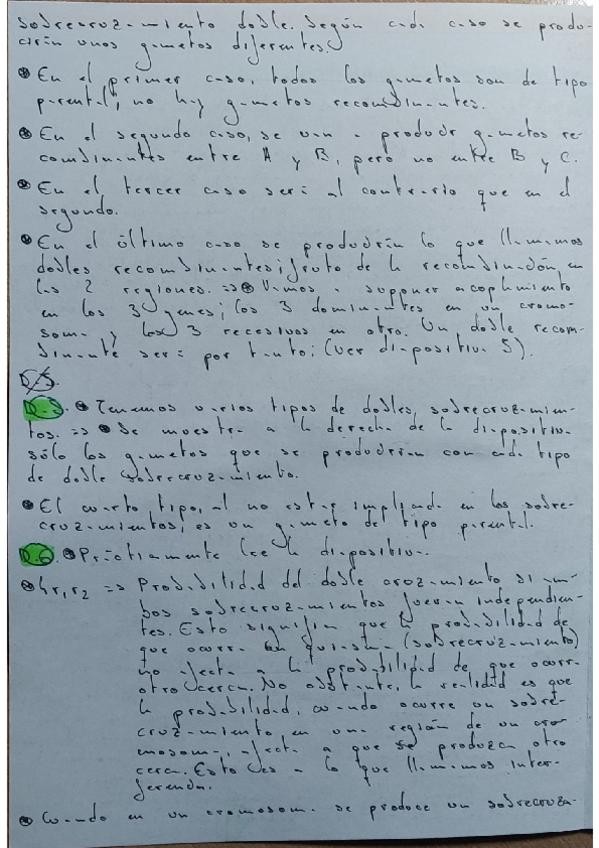 sobrecruzamiento doble. Según cada caso se produ-
cirán unos gametos diferentes.
En el primer caso, todos los gametos son de tipo
parental, no hay gametos recombinantes.
En el segundo caso, se van a producir gametos re-
combinantes entre A y B, pero no entre B y C.
En el tercer caso será al contrario que en el
segundo.
En el último caso se producirán lo que llamamos
dobles recombinantes; fruto de la recombinación en
las 2 regiones. => Vamos a suponer acoplamiento
en los 3 genes; los 3 dominantes en un cromo-
soma y los 3 recesivos en otro. Un doble recom-
binante será por tanto: (ver diapositiva 5).
D.5.
D.5. Tenemos varios tipos de dobles sobrecruzamien-
tos. => Se muestra a la derecha de la diapositiva
sólo los gametos que se producirían con cada tipo
de doble sobrecruzamiento.
El cuarto tipo, al no estar implicado en los sobre-
cruzamientos, es un gameto del tipo parental.
D.6. Prácticamente lee la diapositiva.
4r₁r₂ => Probabilidad del doble cruzamiento si am-
bos sobrecruzamientos fueran independien-
tes. Esto significa que la probabilidad de
que ocurra un quiasma (sobrecruzamiento)
no afecta a la probabilidad de que ocurra
otro cerca. No obstante, la realidad es que
la probabilidad, cuando ocurre un sobre-
cruzamiento en una región de un cro-
mosoma, afecta a que se produzca otro
cerca. Esto es a lo que llamamos inter-
ferencia.
Cuando en un cromosoma se produce un sobrecruza-